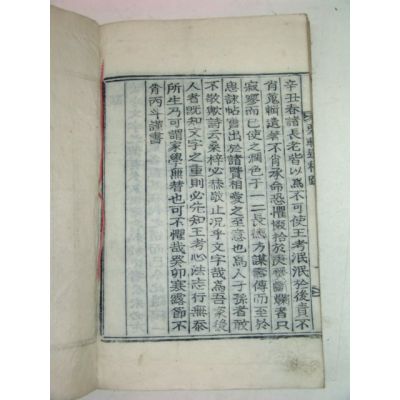 辛丑春諸長老皆以爲不可使王考泯泯於後責不
肖蒐輯遺藁不肖承命恐懼惙拾於斷爛者只
寂寥而已使之潤色于一二長德方謀壽傳而至於
悳誄帖蕾出於諸賢相愛之至意也爲人子孫者敢
不敬歟詩云桑梓必恭敬止况乎文字哉爲吾家後
人者旣知文字之重則必先知王考心法志行無忝
所生乃可謂家學無替也可不懼哉癸卯寒露節不
肖丙斗謹書